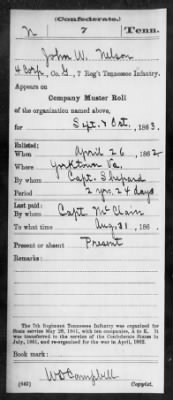 (Confederate.)
N 7 Tenn.
John W. Nelson
4 Corp., Co. G, 7 Reg't Tennessee Infantry.
Appears on
Company Muster Roll
of the organization named above,
for Sept. & Oct., 1863.
Enlisted:
When April 26, 1862
Where Yorktown Va.
By whom Capt. Shepard
Period 2 yrs. 24 days
Last paid:
By whom Capt. McClain
To what time Aug. 31, 186 .
Present or absent Present
Remarks:
The 7th Regiment Tennessee Infantry was organized for
State service May 28, 1861, with ten companies, A to K. It
was transferred to the service of the Confederate States in
July, 1861, and re-organized for the war in April, 1862.
Book mark:
W D Campbell
(642) Copyist.